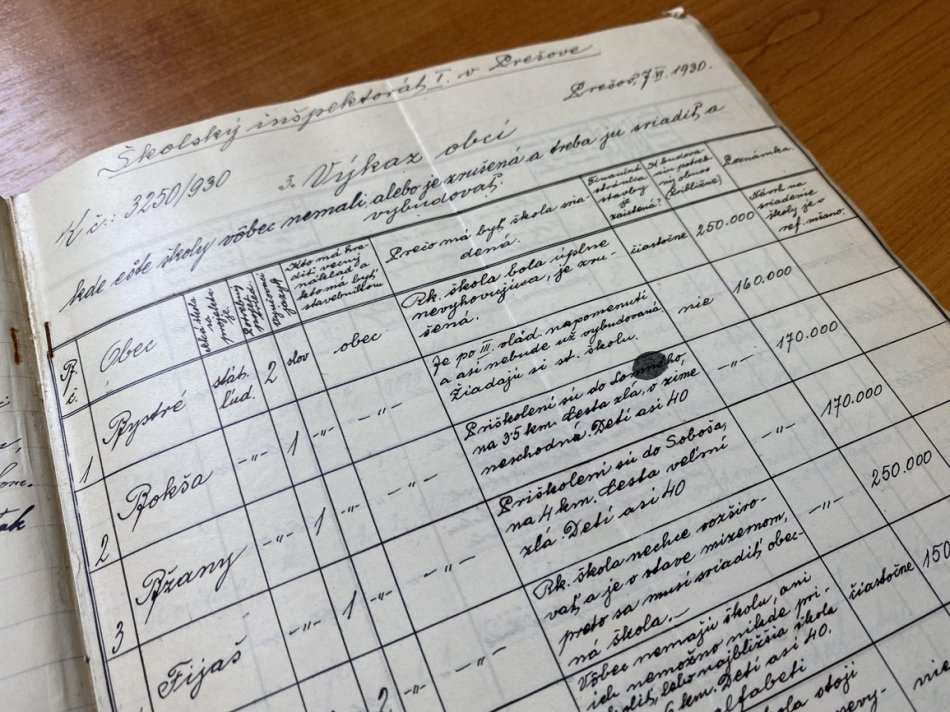 Školský inšpektorát I. v Prešove
Prešov, 7. VI. 1930.
K č.: 3250/930
3. Výkaz obcí
kde ešte školy vôbec nemali, alebo je zrušená a treba ju sriadiť a
vybudovať.
P.
č.
Obec
Kto má hra-
diť vecný
náklad a
kto má byť
stavebníkom
Prečo má byť škola sria-
dená.
Finančná
stránka
stavby
je
zaistená?
K budova-
niu potreb-
ný obnos
(približne)
Poznámka.
1
Bystré
štát.
ľud.
2
slov
obec
Rk. škola bola úplne
nevyhovujúca, je zru-
šená.
čiastočne
250.000
Návrh na
sriadenie
školy je v
ref. mšano.
2
Bokša
-"-
1
-"-
-"-
Je po III. vlád. napomenutí
a asi nebude už vybudovaná.
Žiadajú si št. školu.
nie
160.000
3
Bžany
-"-
1
-"-
-"-
Priškolení sú do Lomného,
na 3·5 km. Cesta zlá, v zime
neschodná. Detí asi 40
-"-
170.000
Fijaš
-"-
1
-"-
-"-
Priškolení sú do Soboša,
na 4 km. Cesta veľmi
zlá. Detí asi 40
-"-
170.000
2
-"-
-"-
Rk. škola nechce rozširo-
vať a je v stave mizernom,
preto sa musí sriadiť obec-
ná škola.
-"-
250.000
Vôbec nemajú školu, ani
ich nemožno nikde pri-
lebo najbližšia škola
km. Detí asi 40.
čiastočne
150
škola stojí
nie